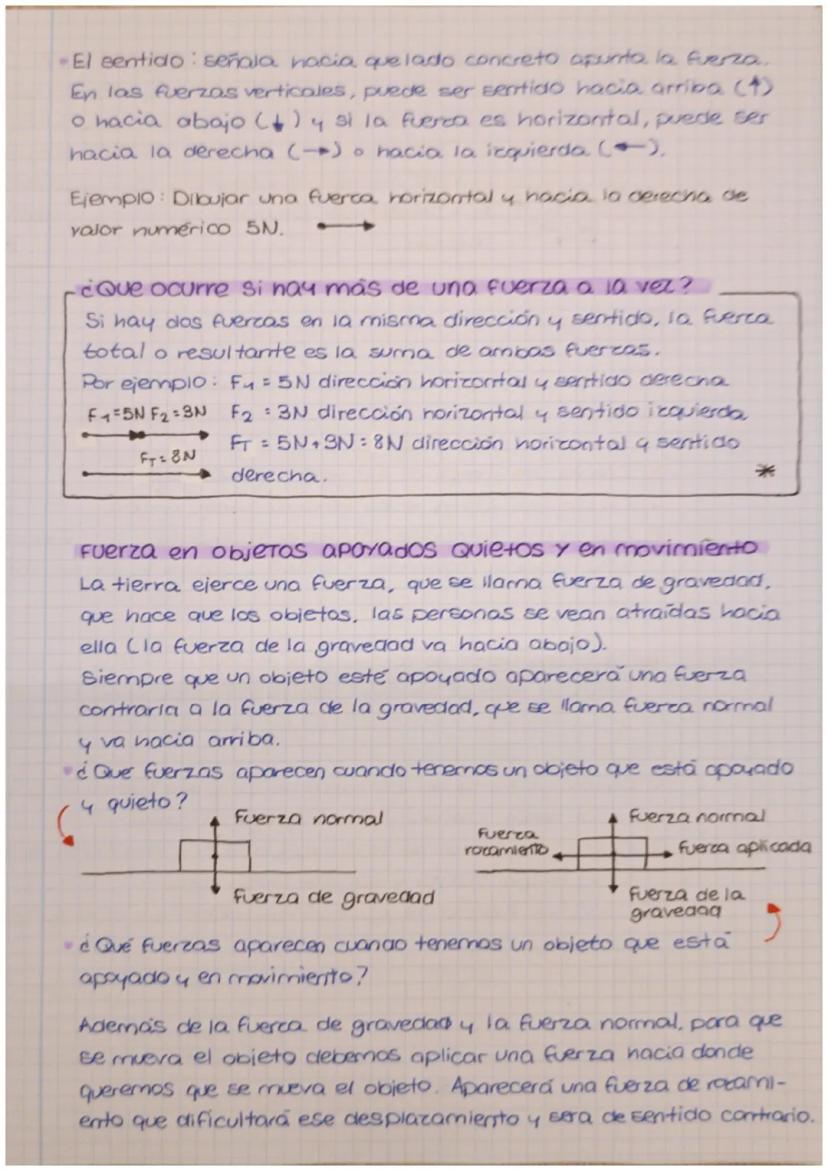 • El sentido: señala hacia que lado concreto apunta la fuerza.
En las fuerzas verticales, puede ser sentido hacia arriba (↑)
o hacia abajo (↓) y si la fuerza es horizontal, puede ser
hacia la derecha (→) o hacia la izquierda (←).
Ejemplo: Dibujar una fuerza horizontal y hacia la derecha de
valor numérico 5N.
¿Que ocurre si hay más de una fuerza a la vez?
Si hay dos fuerzas en la misma dirección y sentido, la fuerza
total o resultante es la suma de ambas fuerzas.
Por ejemplo: F1 = 5N dirección horizontal y sentido derecha
F1=5N F2=3N F2 = 3N dirección horizontal y sentido izquierda
FT = 5N+3N=8N dirección horizontal y sentido
FT=8N
derecha. *
Fuerza en objetos apoyados quietos y en movimiento
La tierra ejerce una fuerza, que se llama fuerza de gravedad,
que hace que los objetos, las personas se vean atraídas hacia
ella (la fuerza de la gravedad va hacia abajo).
Siempre que un objeto esté apoyado aparecerá una fuerza
contraria a la fuerza de la gravedad, que se llama fuerza normal
y va hacia arriba.
• ¿Que fuerzas aparecen cuando tenemos un objeto que está apoyado
y quieto?
Fuerza normal
Fuerza de gravedad
Fuerza normal
Fuerza
rozamiento
fuerza aplicada
Fuerza de la
gravedad
• ¿Qué fuerzas aparecen cuando tenemos un objeto que está
apoyado y en movimiento?
Además de la fuerza de gravedad y la fuerza normal, para que
se mueva el objeto debemos aplicar una fuerza hacia donde
queremos que se mueva el objeto. Aparecerá una fuerza de rozami-
ento que dificultará ese desplazamiento y sera de sentido contrario.